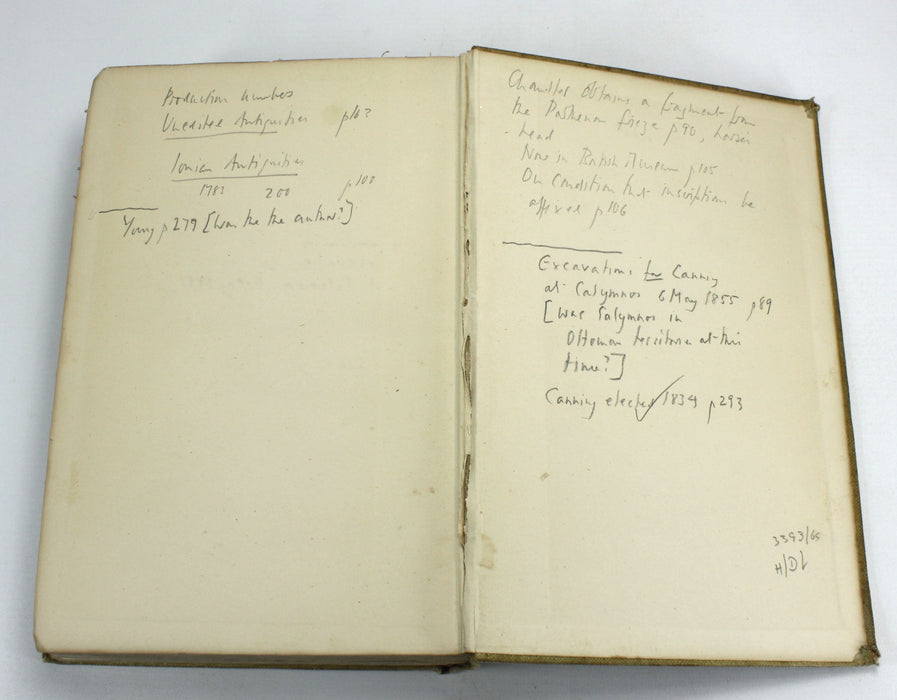 Production numbers
Unedited Antiquities p103
Ionian Antiquities
1783 200 p103
Young p279 [Was he the author?]
Chandler obtains a fragment from
the Parthenon frieze p90, horse's
head
Now in British Museum p105
On condition that inscription be
affixed p106
Excavations for Canning
at Calymnos 6 May 1855 p89
[was Calymnos in
Ottoman territories at this
time?]
Canning elected 1834 p293
3393/65
H/DL